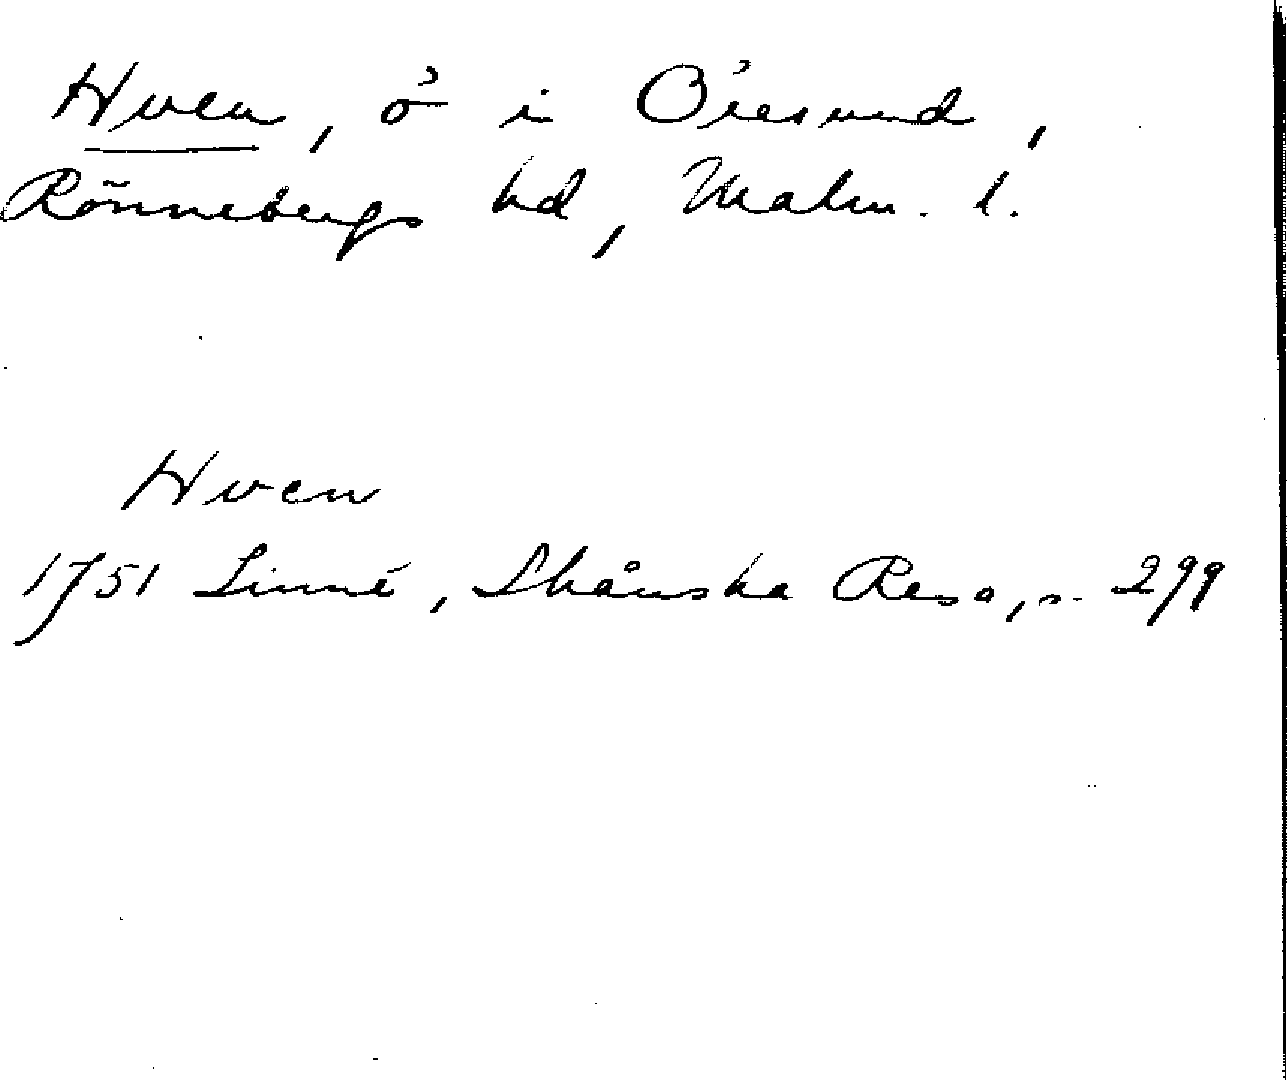 Hven, ö i Öresund,
Rönnebergs hd, Malm. l.
Hven
1751 Linné, Skånska Resa, s. 299